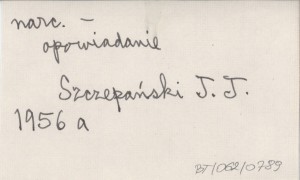 narc. –
opowiadanie
Szczepański J. J.
1956 a
BT/062/0789